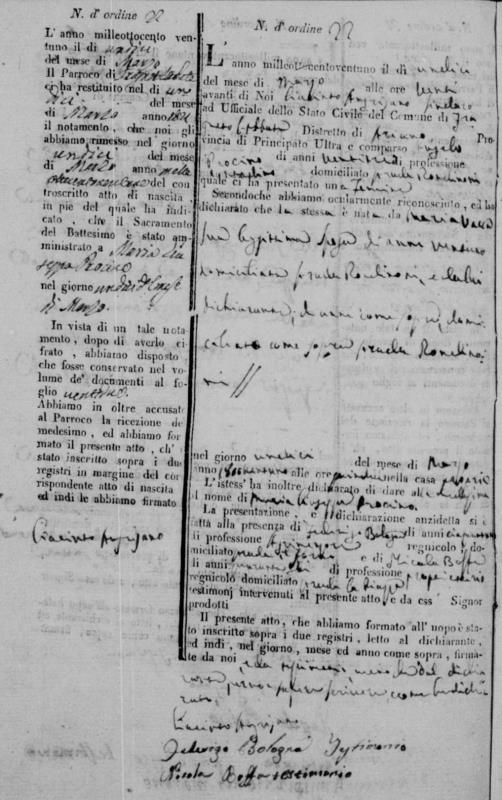 N. d'ordine 22
L' anno milleottocento ven-
tuno il dì undici
del mese di Marzo
Il Parroco di
ci ha restituito nel dì un
dici del mese
di Marzo anno 1821
il notamento, che noi gli
abbiamo rimesso nel giorno
undici del mese
di Marzo anno mille
ottocentoventuno del con
troscritto atto di nascita
in piè del quale ha indi
cato, che il Sacramento
del Battesimo è stato am
ministrato a Maria Giu
seppa Procino
nel giorno undici
di Marzo.
In vista di un tale nota
mento, dopo di averlo ci-
frato, abbiamo disposto
che fosse conservato nel vo
lume de' documenti al fo
glio ventidue
Abbiamo in oltre accusato
al Parroco la ricezione de
medesimo, ed abbiamo for
mato il presente atto, ch' è
stato inscritto sopra i due
registri in margine del cor
rispondente atto di nascita
ed indi le abbiamo firmato
Giacinto
N. d' ordine 22
L' anno milleottocentoventuno il dì undici
del mese di Marzo alle ore venti
avanti di Noi Giacinto Sindaco
ed Uffiziale dello Stato Civile del Comune di
Distretto di Pro
vincia di Principato Ultra e comparso Angelo
Procino di anni di professione
domiciliato strada Ronclinoni
quale ci ha presentato una femina
Secondochè abbiamo ocularmente riconosciuto, ed ha
dichiarato che la stessa è nata da Maria
sua legittima sposa di anni ventuno
domiciliata strada Ronclinoni, e da lui
dichiarante, di anni come sopra, domi
ciliato come sopra strada Ronclino
ni //
nel giorno undici del mese di Marzo
anno alle ore nella casa
L'istess' ha inoltre dichiarato di dare alla medesima
il nome di Maria Giuseppa Procino
La presentazione, e dichiarazione anzidetta si è
fatta alla presenza di Bologna di anni
di professione regnicolo do
miciliato strada e di Nicola Boffa
di anni di professione proprietario
regnicolo domiciliato strada la Piazza
testimonj intervenuti al presente atto e da ess' Signor
prodotti
Il presente atto, che abbiamo formato all' uopo è sta
to inscritto sopra i due registri, letto al dichiarante,
ed indi, nel giorno, mese ed anno come sopra, firma
te da noi, e da testimonj, meno che dal dichia
rante, per non sapere scrivere come ha dichia
rato,
Giacinto
Federigo Bologna Testimonio
Nicola Boffa testimonio